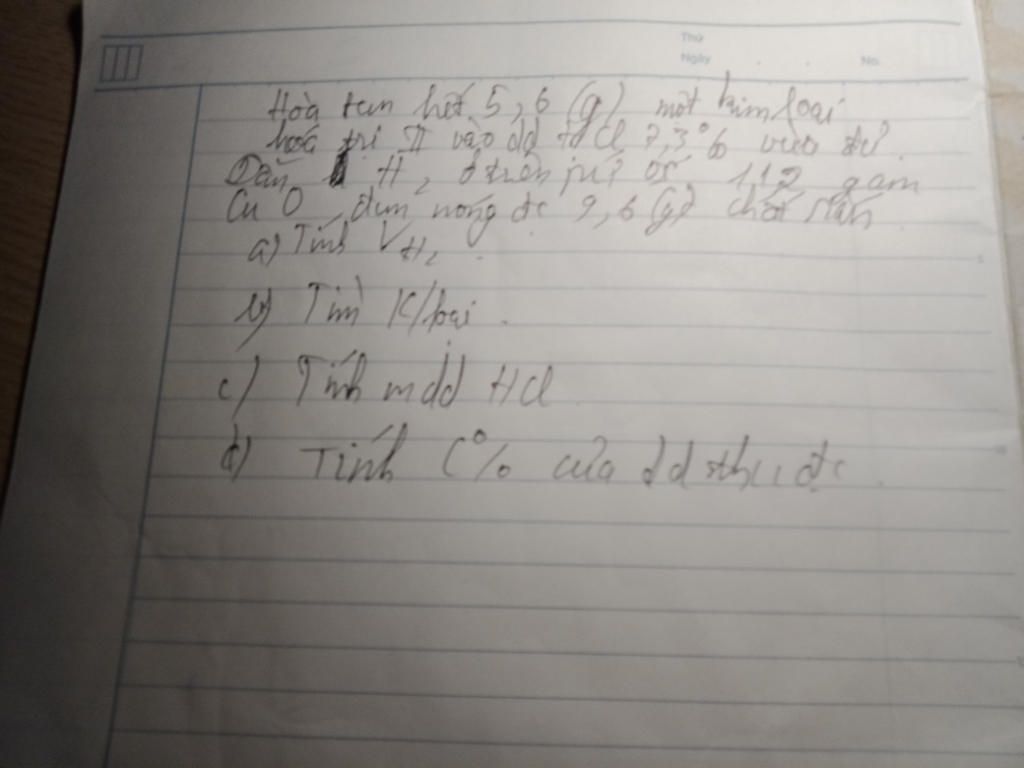 Thứ
Ngày
No.
Hòa tan hết 5,6 (g) một kim loại
hoá trị II vào dd HCl 7,3% vừa đủ.
Dẫn H2 ở trên 112 gam
CuO đun nóng đc 9,6 (g) chất rắn
a) Tính VH2.
b) Tìm K/loại.
c) Tính mdd HCl
d) Tính C% của dd thu đc.